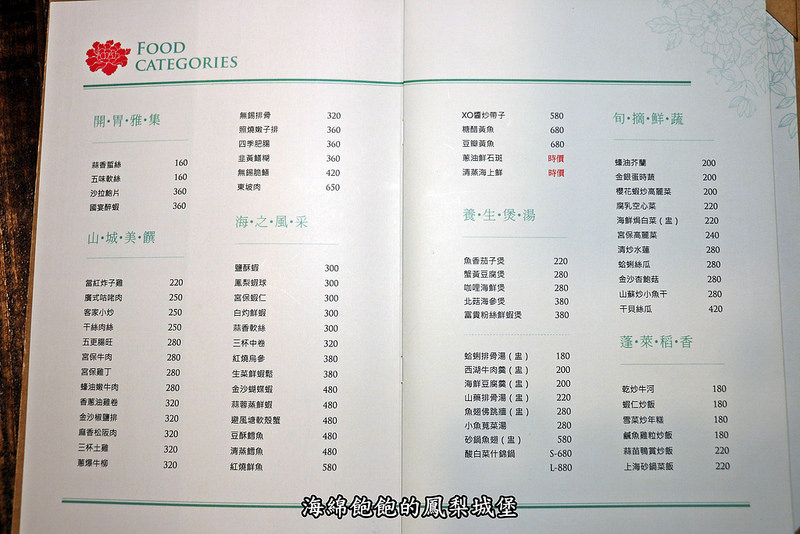 FOOD
CATEGORIES
開・胃・雅・集
蒜香蜇絲 160
五味軟絲 160
沙拉鮑片 360
國宴醉蝦 360
山・城・美・饌
當紅炸子雞 220
廣式咕咾肉 250
客家小炒 250
干絲肉絲 250
五更腸旺 280
宮保牛肉 280
宮保雞丁 280
蠔油嫩牛肉 280
香蔥油雞卷 320
金沙椒鹽排 320
麻香松阪肉 320
三杯土雞 320
蔥爆牛柳 320
無錫排骨 320
照燒嫩子排 360
四季肥腸 360
韭黃鱔糊 360
無錫脆鱔 420
東坡肉 650
海・之・風・采
鹽酥蝦 300
鳳梨蝦球 300
宮保蝦仁 300
白灼鮮蝦 300
蒜香軟絲 300
三杯中卷 320
紅燒烏參 380
生菜鮮蝦鬆 380
金沙蝴蝶蝦 480
蒜蓉蒸鮮蝦 480
避風塘軟殼蟹 480
豆酥鱈魚 480
清蒸鱈魚 480
紅燒鮮魚 580
XO醬炒帶子 580
糖醋黃魚 680
豆瓣黃魚 680
蔥油鮮石斑 時價
清蒸海上鮮 時價
養・生・煲・湯
魚香茄子煲 220
蟹黃豆腐煲 280
咖哩海鮮煲 280
北菇海參煲 380
富貴粉絲鮮蝦煲 380
蛤蜊排骨湯(盅) 180
西湖牛肉羹(盅) 200
海鮮豆腐羹(盅) 200
山藥排骨湯(盅) 220
魚翅佛跳牆(盅) 280
小魚莧菜湯 280
砂鍋魚翅(盅) 580
酸白菜什錦鍋 S-680
L-880
旬・摘・鮮・蔬
蠔油芥蘭 200
金銀蛋時蔬 200
櫻花蝦炒高麗菜 200
腐乳空心菜 220
海鮮焗白菜(盅) 220
宮保高麗菜 240
清炒水蓮 280
蛤蜊絲瓜 280
金沙杏鮑菇 280
山蘇炒小魚干 280
干貝絲瓜 420
蓬・萊・稻・香
乾炒牛河 180
蝦仁炒飯 180
雪菜炒年糕 180
鹹魚雞粒炒飯 180
蒜苗鴨賞炒飯 220
上海砂鍋菜飯 220
海綿飽飽的鳳梨城堡